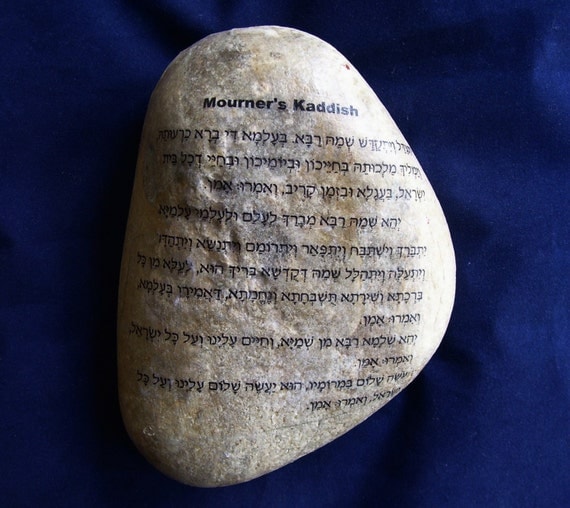 Mourner's Kaddish
וְיִתְקַדַּשׁ שְׁמֵהּ רַבָּא. בְּעָלְמָא דִּי בְרָא כִרְעוּתֵהּ
מַלְכוּתֵהּ בְּחַיֵּיכוֹן וּבְיוֹמֵיכוֹן וּבְחַיֵּי דְכָל בֵּית
יִשְׂרָאֵל, בַּעֲגָלָא וּבִזְמַן קָרִיב, וְאִמְרוּ אָמֵן.
יְהֵא שְׁמֵהּ רַבָּא מְבָרַךְ לְעָלַם וּלְעָלְמֵי עָלְמַיָּא
יִתְבָּרַךְ וְיִשְׁתַּבַּח וְיִתְפָּאַר וְיִתְרוֹמַם וְיִתְנַשֵּׂא וְיִתְהַדָּר
וְיִתְעַלֶּה וְיִתְהַלָּל שְׁמֵהּ דְּקֻדְשָׁא בְּרִיךְ הוּא, לְעֵלָּא מִן כָּל
בִּרְכָתָא וְשִׁירָתָא תֻּשְׁבְּחָתָא וְנֶחֱמָתָא, דַּאֲמִירָן בְּעָלְמָא,
וְאִמְרוּ אָמֵן.
יְהֵא שְׁלָמָא רַבָּא מִן שְׁמַיָּא, וְחַיִּים עָלֵינוּ וְעַל כָּל יִשְׂרָאֵל,
וְאִמְרוּ אָמֵן.
עֹשֶׂה שָׁלוֹם בִּמְרוֹמָיו, הוּא יַעֲשֶׂה שָׁלוֹם עָלֵינוּ וְעַל כָּל
יִשְׂרָאֵל, וְאִמְרוּ אָמֵן.